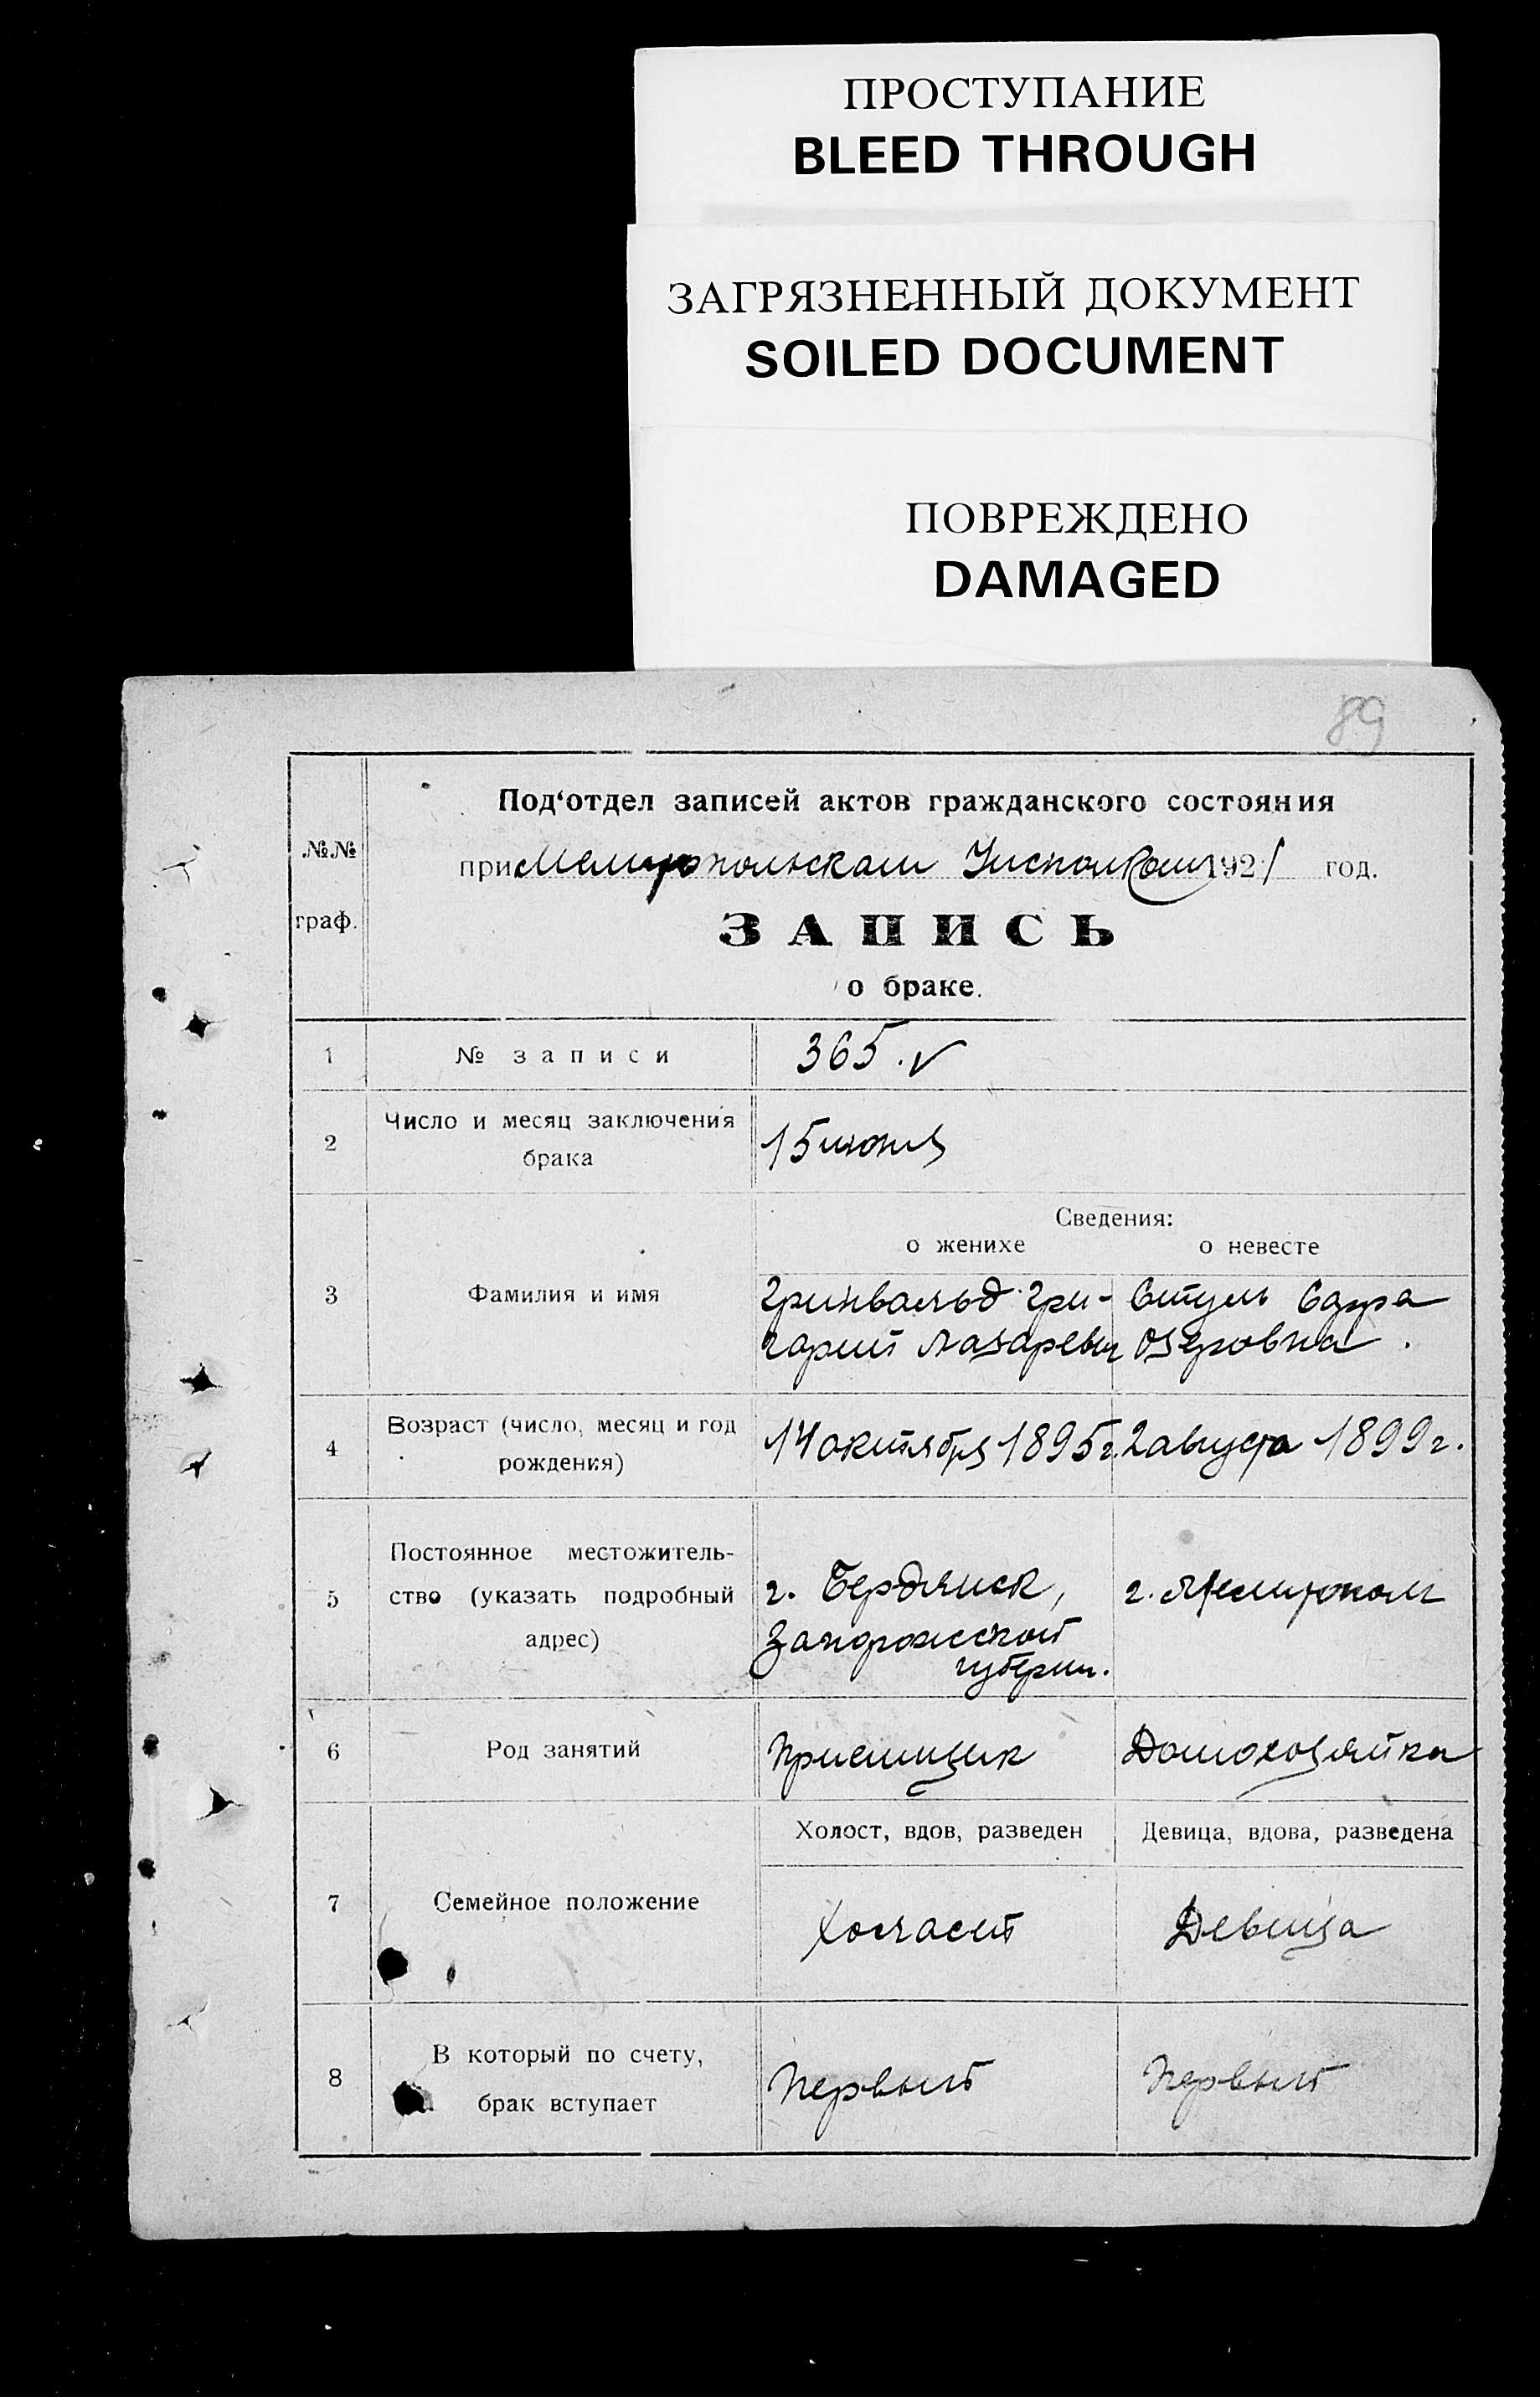 ПРОСТУПАНИЕ
BLEED THROUGH
ЗАГРЯЗНЕННЫЙ ДОКУМЕНТ
SOILED DOCUMENT
ПОВРЕЖДЕНО
DAMAGED
89
Под‘отдел записей актов гражданского состояния
№№
граф.
при Мелитопольском Исполкоме 1921 год.
ЗАПИСЬ
о браке.
1 № записи 365. ✓
2 Число и месяц заключения
брака
15 июня
Сведения:
о женихе о невесте
3 Фамилия и имя
Гринвальд Гри-
горий Лазаревич
4 Возраст (число, месяц и год
рождения)
14 октября 1895 г. 2 августа 1899 г.
5 Постоянное местожитель-
ство (указать подробный
адрес)
г. Бердянск, г. Мелитополь
Запорожской
губерни.
6 Род занятий Приемщик Домохозяйка
Холост, вдов, разведен Девица, вдова, разведена
7 Семейное положение Холост Девица
8 В который по счету,
брак вступает
Первый Первый